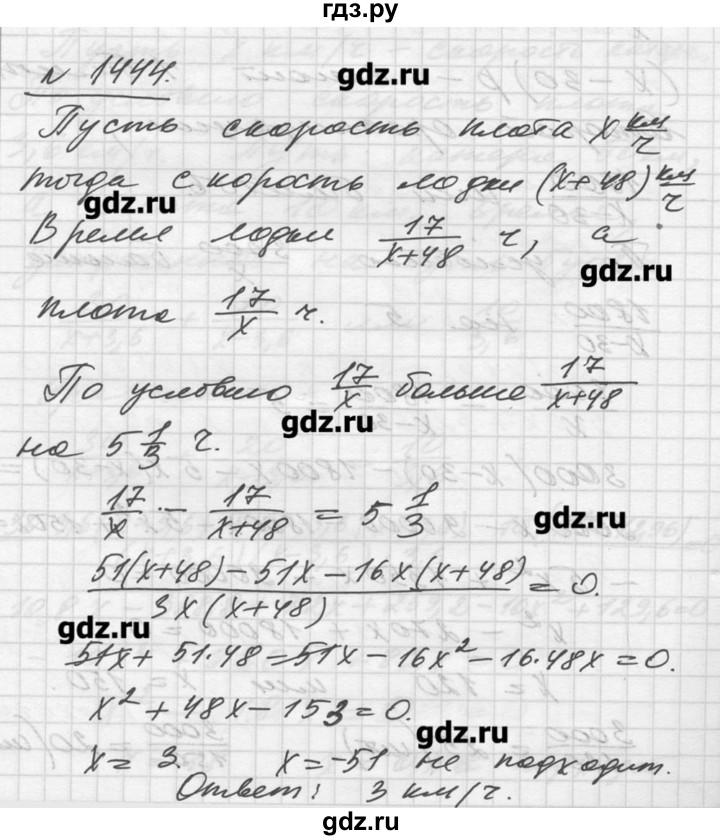 гдз.ру
N 1444.
gdz.ru
Пусть скорость плота x км/ч
тогда скорость лодки (x+48) км/ч
gdz.ru
Время лодки 17/(x+48) ч, а
gdz.ru
плота 17/x ч.
По условию 17/x больше 17/(x+48)
gdz.ru
на 5 1/3 ч.
17/x - 17/(x+48) = 5 1/3
gdz.ru
(51(x+48) - 51x - 16x(x+48))/(3x(x+48)) = 0.
gdz.ru
51x + 51·48 - 51x - 16x² - 16·48x = 0.
x² + 48x - 153 = 0.
gdz.ru
x = 3. x = -51 не подходит.
Ответ: 3 км/ч.
gdz.ru